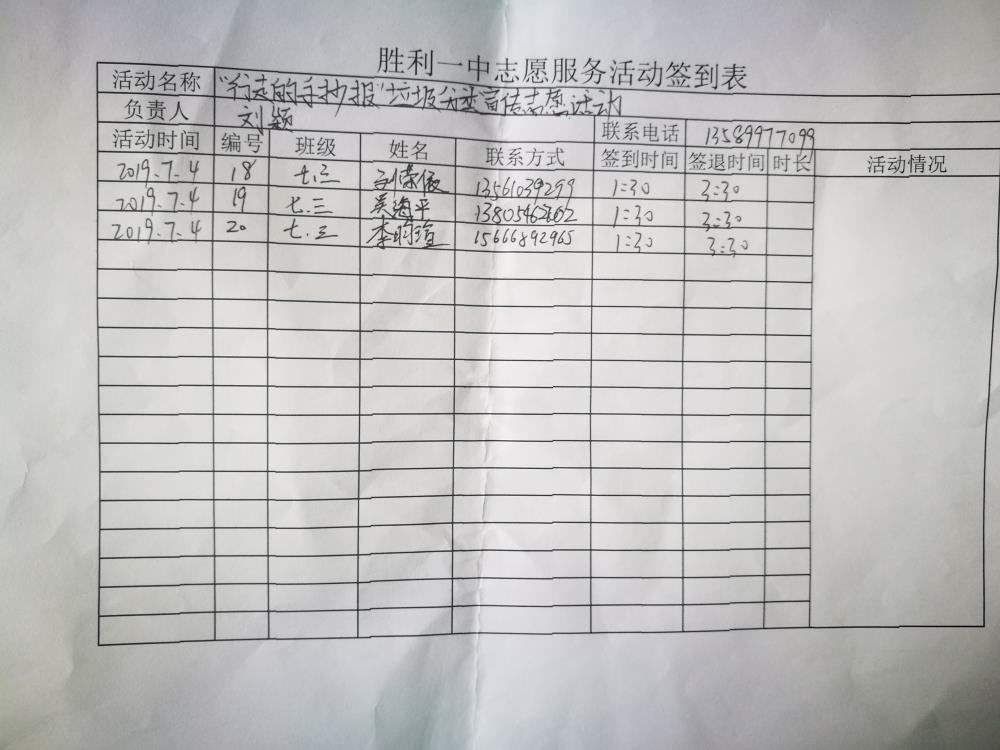 胜利一中志愿服务活动签到表
活动名称 "行走的手抄报"垃圾分类宣传志愿活动
负责人 刘颖 联系电话 13589977099
活动时间 编号 班级 姓名 联系方式 签到时间 签退时间 时长 活动情况
2019.7.4 18 七.三 13561039299 1:30 3:30
2019.7.4 19 七.三 吴海平 13805462602 1:30 3:30
2019.7.4 20 七.三 李明瑄 15666892965 1:30 3:30